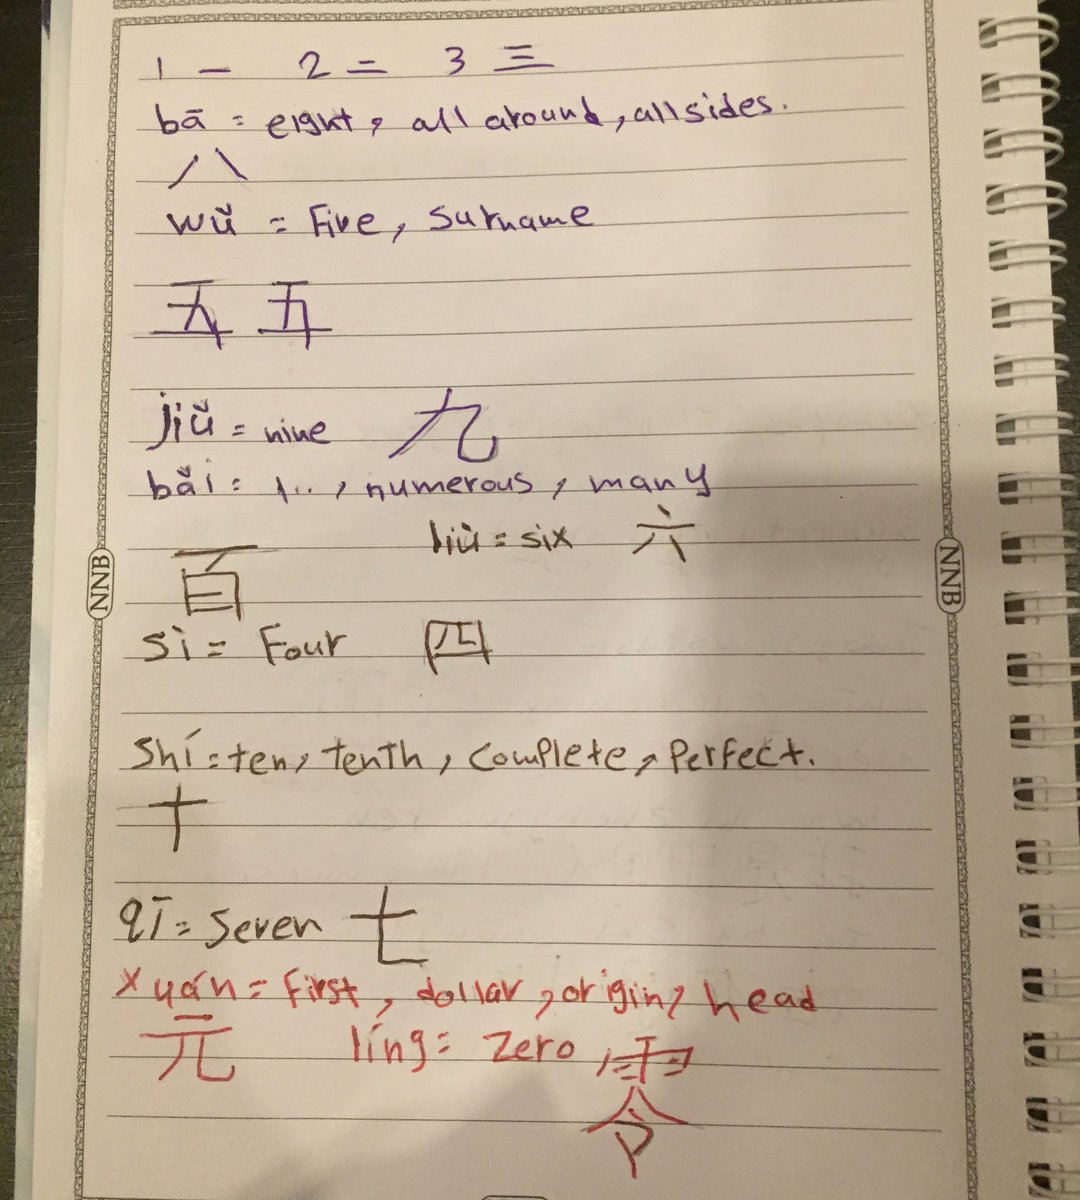 1 一 2 二 3 三
bā = eight, all around, all sides.
八
wǔ = Five, Surname
五 五
jiǔ = nine 九
bǎi = 1.., numerous, many
liù = six 六
百
sì = Four 四
Shí = ten, tenth, complete, perfect.
十
qī = Seven 七
xyán = First, dollar, origin, head
元 líng = zero 零
NNB
NNB